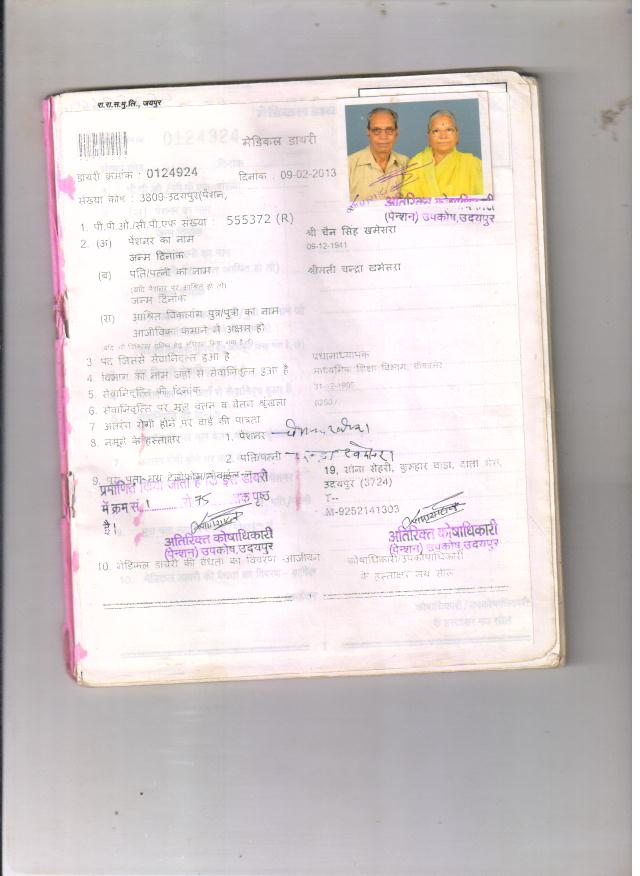 रा.रा.स.मु.लि., जयपुर
मेडिकल डायरी
डायरी क्रमांक : 0124924 दिनांक : 09-02-2013
संख्या कोष : 3809-उदयपुर(पेंशन,
अतिरिक्त कोषाधिकारी
(पेन्शन) उपकोष,उदयपुर
1. पी.पी.ओ./सी.पी.एफ संख्या : 555372 (R)
2. (अ) पेंशनर का नाम श्री चैन सिंह खमेसरा
जन्म दिनांक 09-12-1941
(ब) पति/पत्नी का नाम श्रीमती चन्द्रा खमेसरा
(यदि पेंशनर पर आश्रित हो तो)
जन्म दिनांक
(स) आश्रित विकलांग पुत्र/पुत्री का नाम
आजीविका कमाने में अक्षम हो
3 पद जिससे सेवानिवृत हुआ है प्रधानाध्यापक
4 विभाग का नाम जहाँ से सेवानिवृत हुआ है माध्यमिक शिक्षा विभाग, बीकानेर
5 सेवानिवृत्ति की दिनांक
6 सेवानिवृत्ति पर मूल वेतन व वेतन श्रृंखला
7 अंतरंग रोगी होने पर वार्ड की पात्रता
8. नमूने के हस्ताक्षर 1. पेंशनर
2. पति/पत्नी
19, सोना सेहरी, कुम्हार वाडा,
उदयपुर (3724)
T--
M-9252141303
प्रमाणित किया जाता है कि इस डायरी
में क्रम सं. 1 से 75 तक पृष्ठ
है।
अतिरिक्त कोषाधिकारी
(पेन्शन) उपकोष,उदयपुर
अतिरिक्त कोषाधिकारी
(पेन्शन) उपकोष,उदयपुर
10. मेडिकल डायरी की वैधता का विवरण -आजीवन
कोषाधिकारी/उपकोषाधिकारी
के हस्ताक्षर मय सील